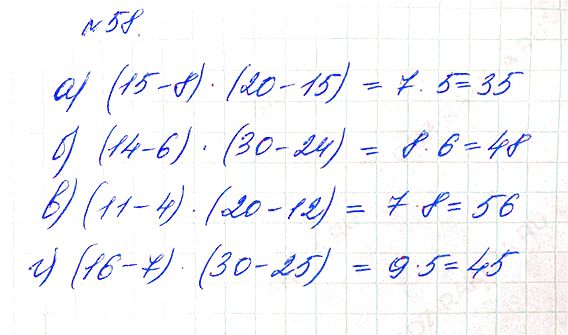 №58.
а) (15-8)·(20-15) = 7·5=35
б) (14-6)·(30-24) = 8·6=48
в) (11-4)·(20-12) = 7·8=56
г) (16-7)·(30-25) = 9·5=45